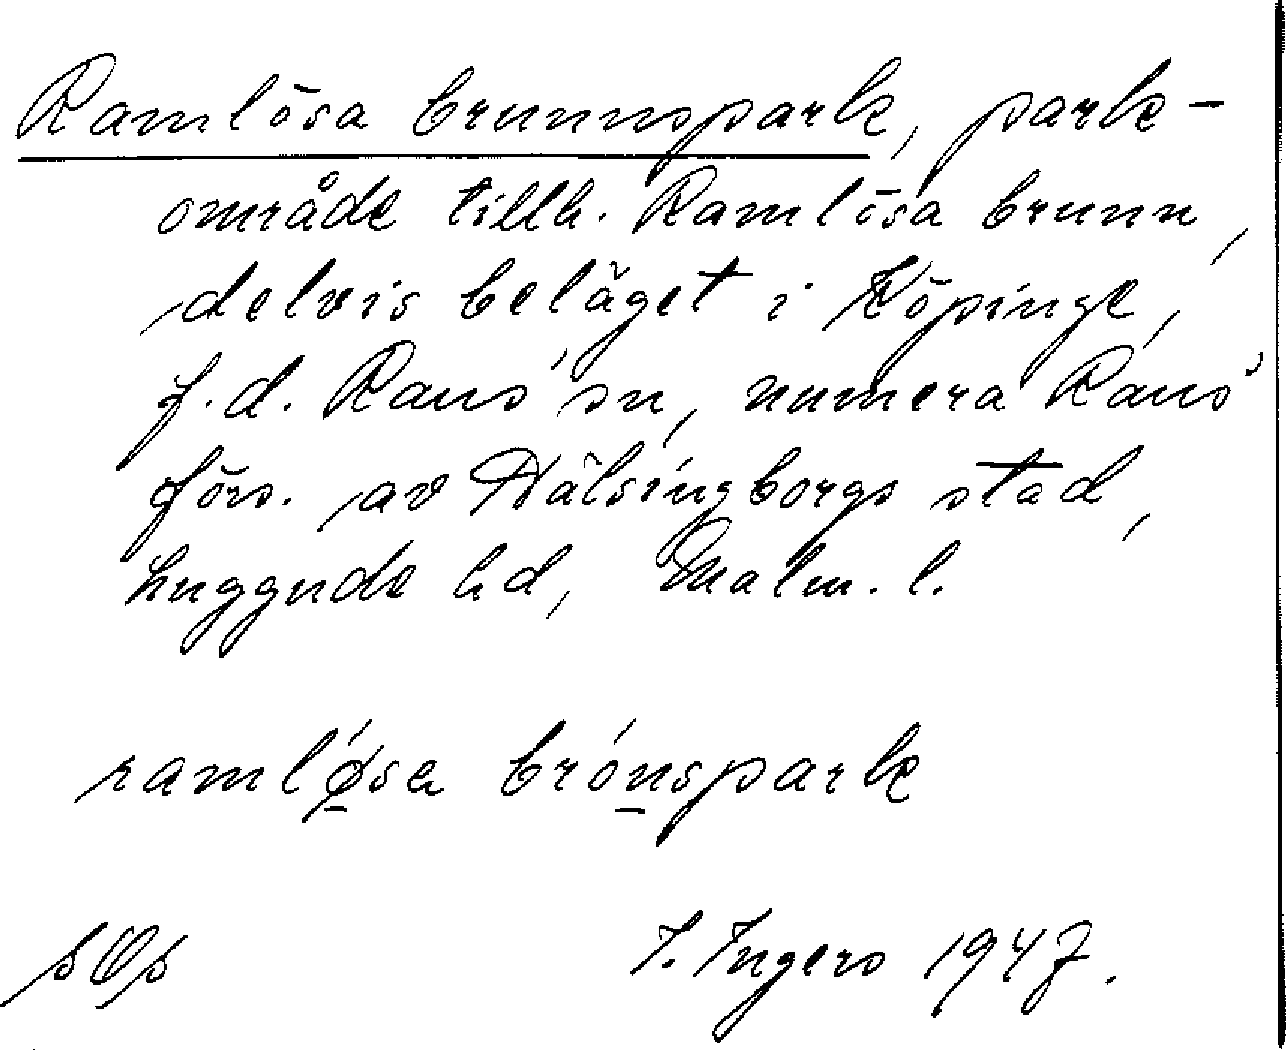 Ramlösa brunnspark, park-
område tillh. Ramlösa brunn,
delvis beläget i Köpinge,
f.d. Raus' sn, numera Raus'
förs. av Hälsingborgs stad,
Luggude hd, Malm. l.
ramlǿ̲sa brón̲spark
I. Ingers 1947.